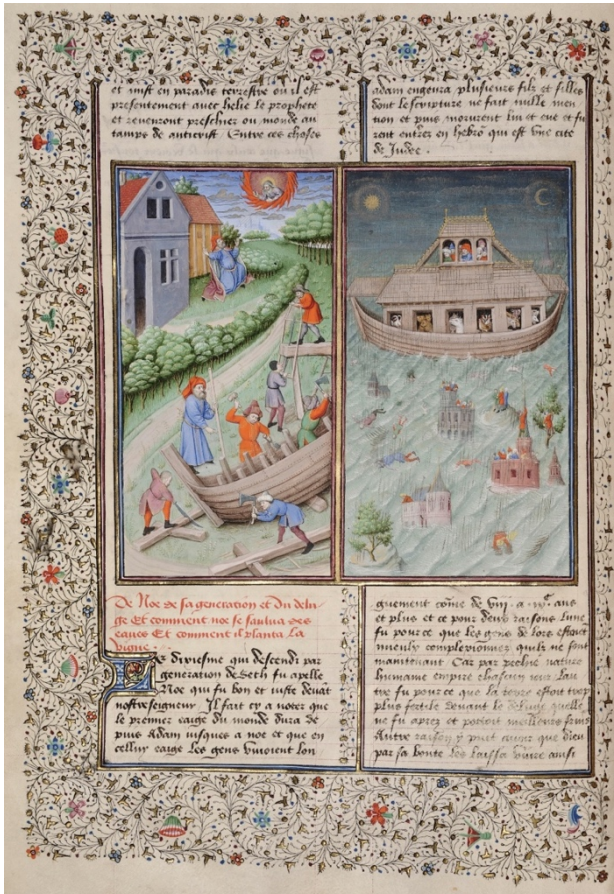 et mist en paradis terrestre ou il est
presentement avec helie le prophete
et revenront preschier ou monde au
tamps de anticrist Entre ces choses
adam engenra plusieurs filz et filles
dont lescripture ne fait nulle men
tion et puis morurent lui et eve et fu
rent entrez en hebron qui est une cite
de Judee .
De Noe de sa generation et du delu-
ge Et comment noe se saulva des
eaues Et comment il planta la
vigne .
Le dixiesme qui descendi par
generation de Seth fu apelle
Noe qui fu bon et iuste devat
nostreseigneur Il fait cy a noter que
le premier eaige du monde dura de
puis Adam iusques a noe et que en
celluy eaige les gens vivoient lon
guement come de viii . a ans
et plus et ce pour deux raisons Lune
fu pource que les gens de lors estoiet
mieulx complexionnez quilz ne sont
maintenant Car par nature
humaine empire chascun iour Lau
tre fu pource que la terre estoit trop
plus fertile devant le deluge quelle
ne fu aprez et portoit meilleurs fruis
Autre raison y puet avoir que dieu
par sa bonte les laissa vivre ainsi